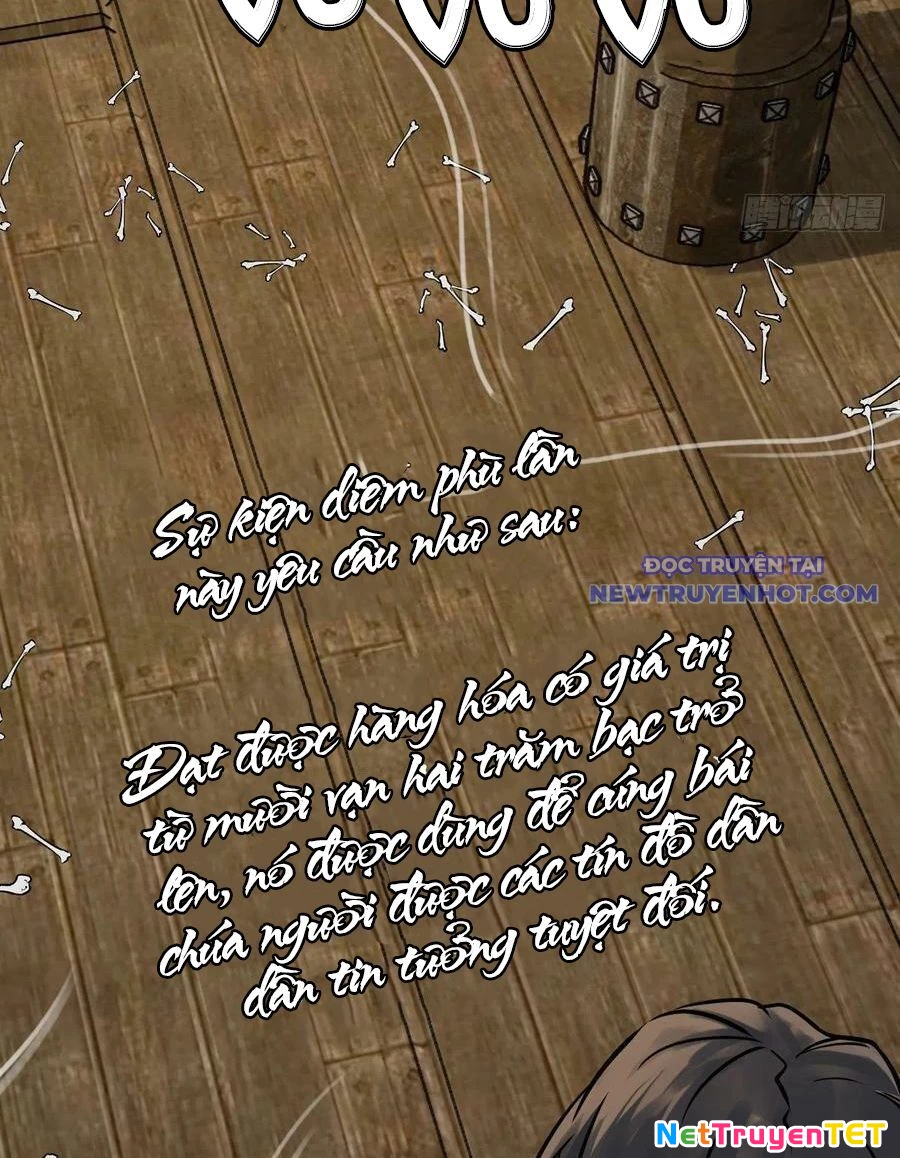 VÙ VÙ VÙ
腾讯动漫
Sự kiện diêm phù lần
này yêu cầu như sau:
ĐỌC TRUYỆN TẠI
NEWTRUYENHOT.COM
Đạt được hàng hóa có giá trị
từ mười vạn hai trăm bạc trở
lên, nó được dùng để cúng bái
chúa người được các tín đồ dần
dần tin tưởng tuyệt đối.
NETTRUYENTET